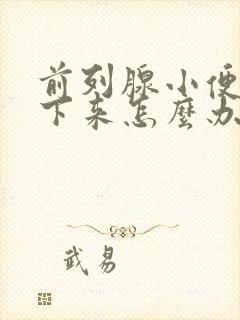 前列腺小便
下来怎麼办
武易